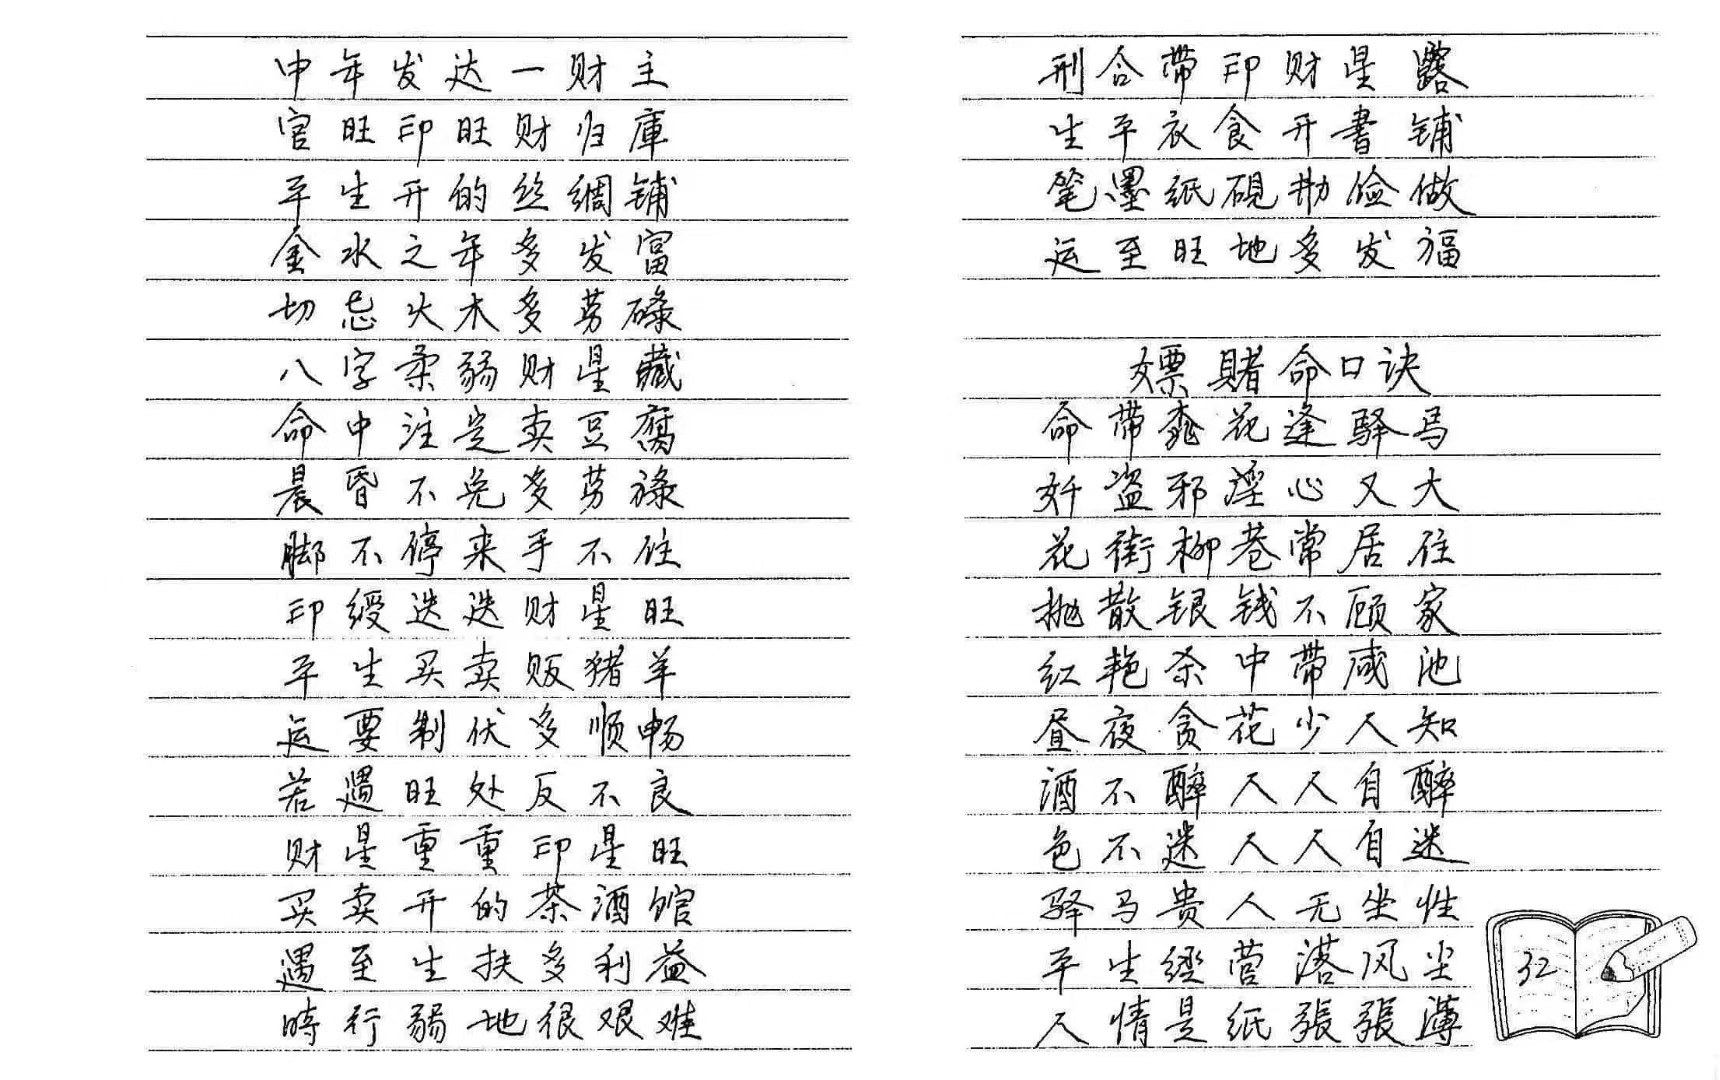 中年发达一财主
官旺印旺财归庫
平生开的丝绸铺
金水之年多发富
切忌火木多劳碌
八字柔弱财星藏
命中注定卖豆腐
晨昏不免多劳碌
脚不停来手不住
印绶迭迭财星旺
平生买卖贩猪羊
运要制伏多顺畅
若遇旺处反不良
财星重重印星旺
买卖开的茶酒馆
遇至生扶多利益
時行弱地很艰难
刑合带印财星露
生平衣食开書铺
笔墨纸砚勤俭做
运至旺地多发福
嫖賭命口诀
命带桃花逢驿马
奸盗邪淫心又大
花街柳巷常居住
抛散银钱不顾家
红艳杀中带咸池
昼夜贪花少人知
酒不醉人人自醉
色不迷人人自迷
驿马贵人无坐性
平生經营落风尘
人情是纸張張薄
32